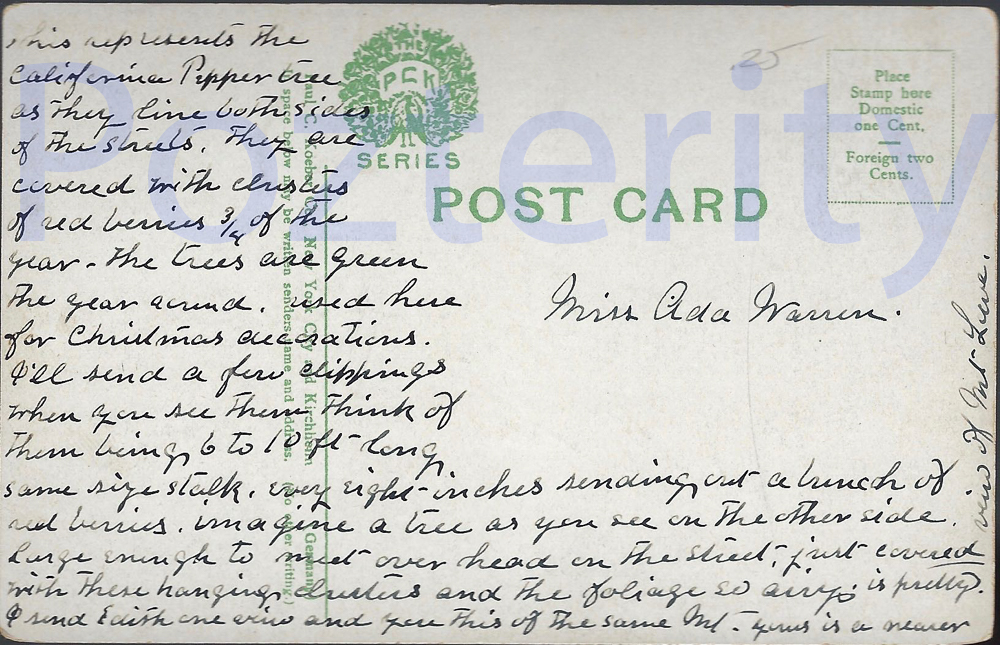 This represents the
California Pepper tree
as they line both sides
of the streets. They are
covered with clusters
of red berries 3/4 of the
year - the trees are green
the year around. used here
for Christmas decorations.
I'll send a few clippings
when you see them think of
them being 6 to 10 ft long,
same size stalk. every eight inches sending out a bunch of
red berries. imagine a tree as you see on the other side.
large enough to meet over head on the street, just covered
with these hanging clusters and the foliage so airy. is pretty.
I send Edith one view and you this of the same Mt. yours is a nearer
view of Mt Lowe.
THE
PCK
SERIES
POST CARD
.25
Place
Stamp here
Domestic
one Cent.
Foreign two
Cents.
Miss Ada Warren.
New York City and Kirchheim Germany
space below may be written senders name and address. (No other writing.)
Pozterity